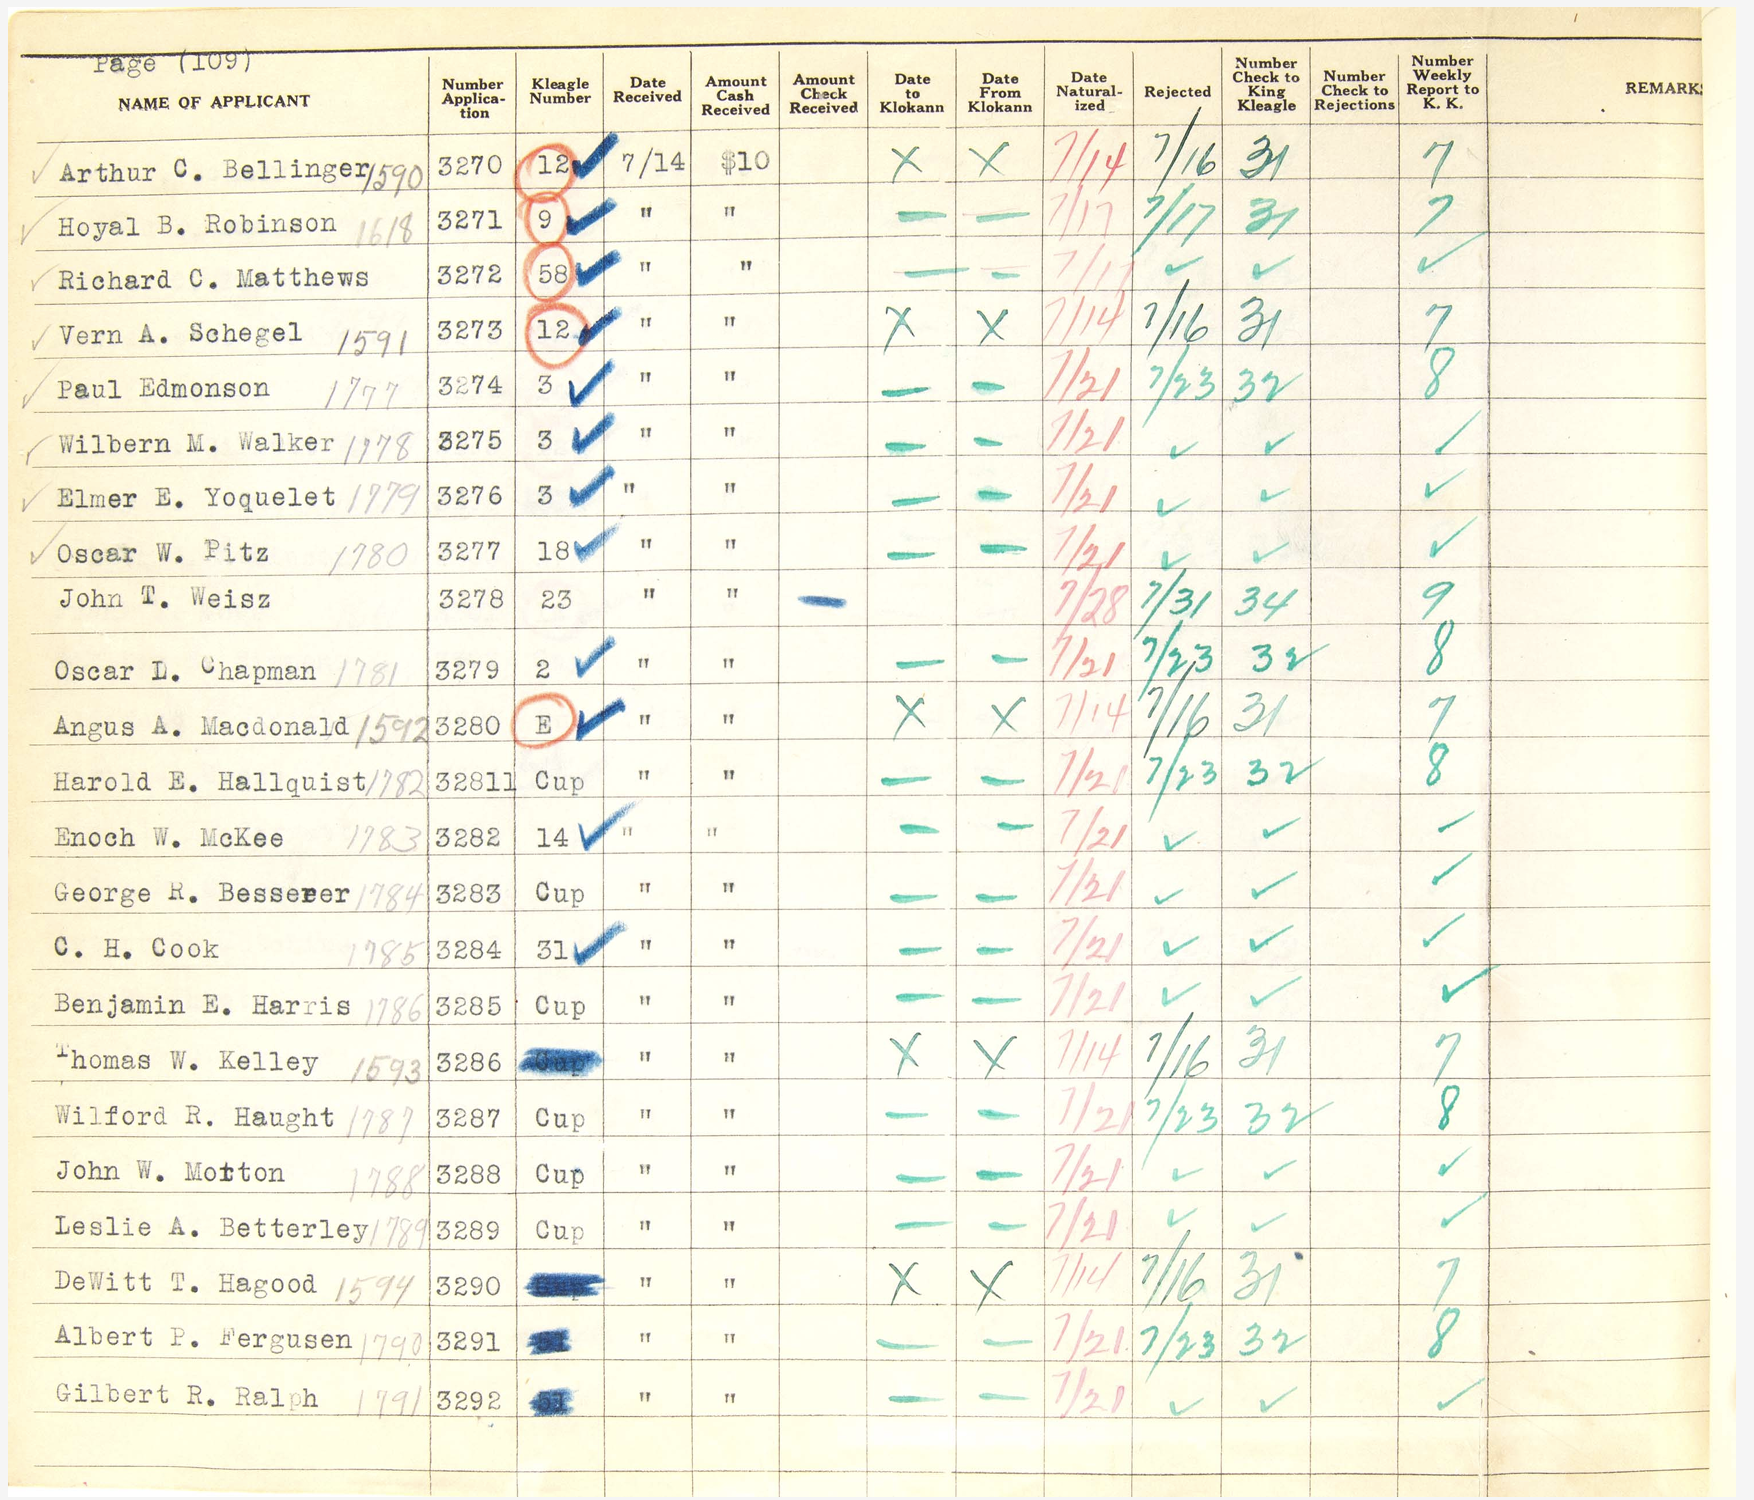 Page (109)
NAME OF APPLICANT | Number Applica-tion | Kleagle Number | Date Received | Amount Cash Received | Amount Check Received | Date to Klokann | Date From Klokann | Date Natural-ized | Rejected | Number Check to King Kleagle | Number Check to Rejections | Number Weekly Report to K. K. | REMARKS
✓ Arthur C. Bellinger 1590 3270 12 ✓ 7/14 $10 X X 7/14 7/16 31 7
✓ Hoyal B. Robinson 1618 3271 9 ✓ " " — — 7/17 7/17 31 7
✓ Richard C. Matthews 3272 58 ✓ " " — — 7/17 ✓ ✓ ✓
✓ Vern A. Schegel 1591 3273 12 ✓ " " X X 7/14 7/16 31 7
✓ Paul Edmonson 1777 3274 3 ✓ " " — — 7/21 7/23 32 8
✓ Wilbern M. Walker 1778 3275 3 ✓ " " — — 7/21 ✓ ✓ ✓
✓ Elmer E. Yoquelet 1779 3276 3 ✓ " " — — 7/21 ✓ ✓ ✓
✓ Oscar W. Pitz 1780 3277 18 ✓ " " — — 7/21 ✓ ✓ ✓
John T. Weisz 3278 23 " " — 7/28 7/31 34 9
Oscar L. Chapman 1781 3279 2 ✓ " " — — 7/21 7/23 32 8
Angus A. Macdonald 1592 3280 E ✓ " " X X 7/14 7/16 31 7
Harold E. Hallquist 1782 32811 Cup " " — — 7/21 7/23 32 8
Enoch W. McKee 1783 3282 14 ✓ " " — — 7/21 ✓ ✓ ✓
George R. Besserer 1784 3283 Cup " " — — 7/21 ✓ ✓ ✓
C. H. Cook 1785 3284 31 ✓ " " — — 7/21 ✓ ✓ ✓
Benjamin E. Harris 1786 3285 Cup " " — — 7/21 ✓ ✓ ✓
Thomas W. Kelley 1593 3286 Cup " " X X 7/14 7/16 31 7
Wilford R. Haught 1787 3287 Cup " " — — 7/21 7/23 32 8
John W. Motton 1788 3288 Cup " " — — 7/21 ✓ ✓ ✓
Leslie A. Betterley 1789 3289 Cup " " — — 7/21 ✓ ✓ ✓
DeWitt T. Hagood 1594 3290 " " X X 7/14 7/16 31 7
Albert P. Fergusen 1790 3291 " " — — 7/21 7/23 32 8
Gilbert R. Ralph 1791 3292 " " — — 7/21 ✓ ✓ ✓